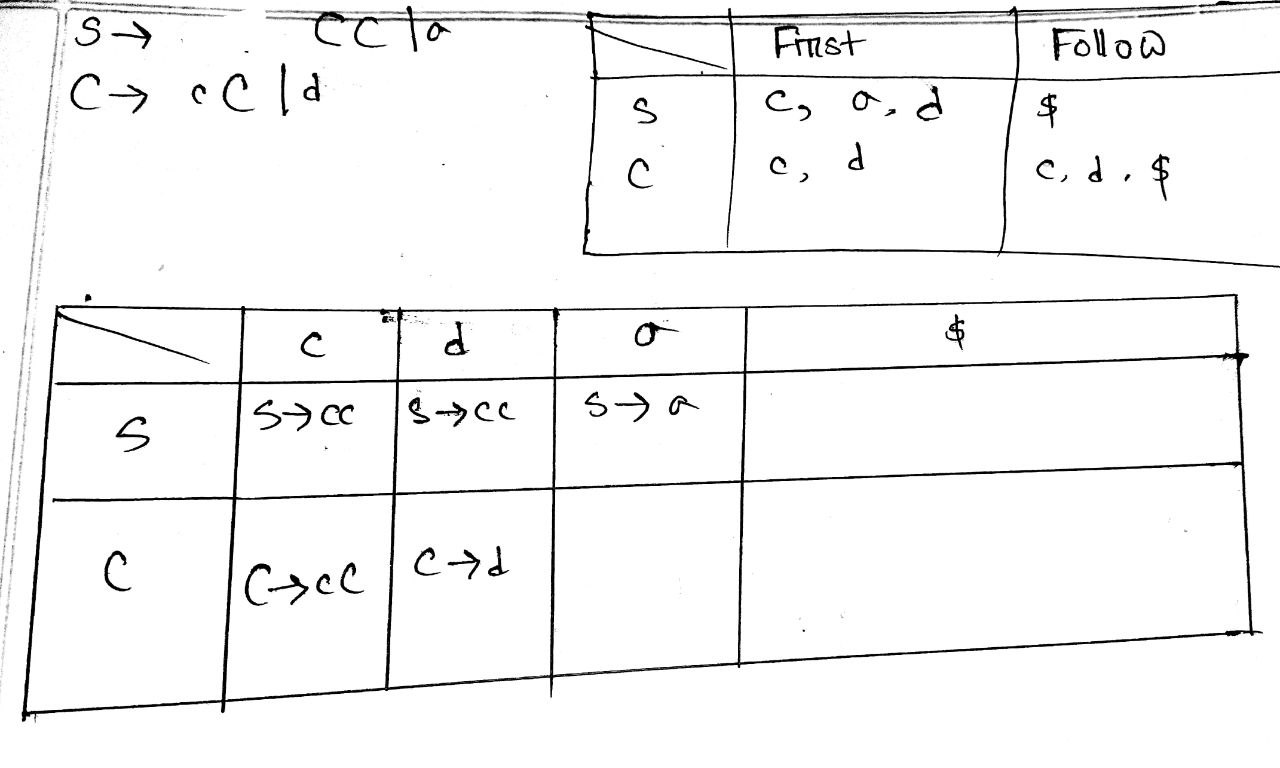 S → CC | a
C → cC | d
First Follow
S c, a, d $
C c, d c, d, $
c d a $
S S→CC S→CC S→a
C C→cC C→d